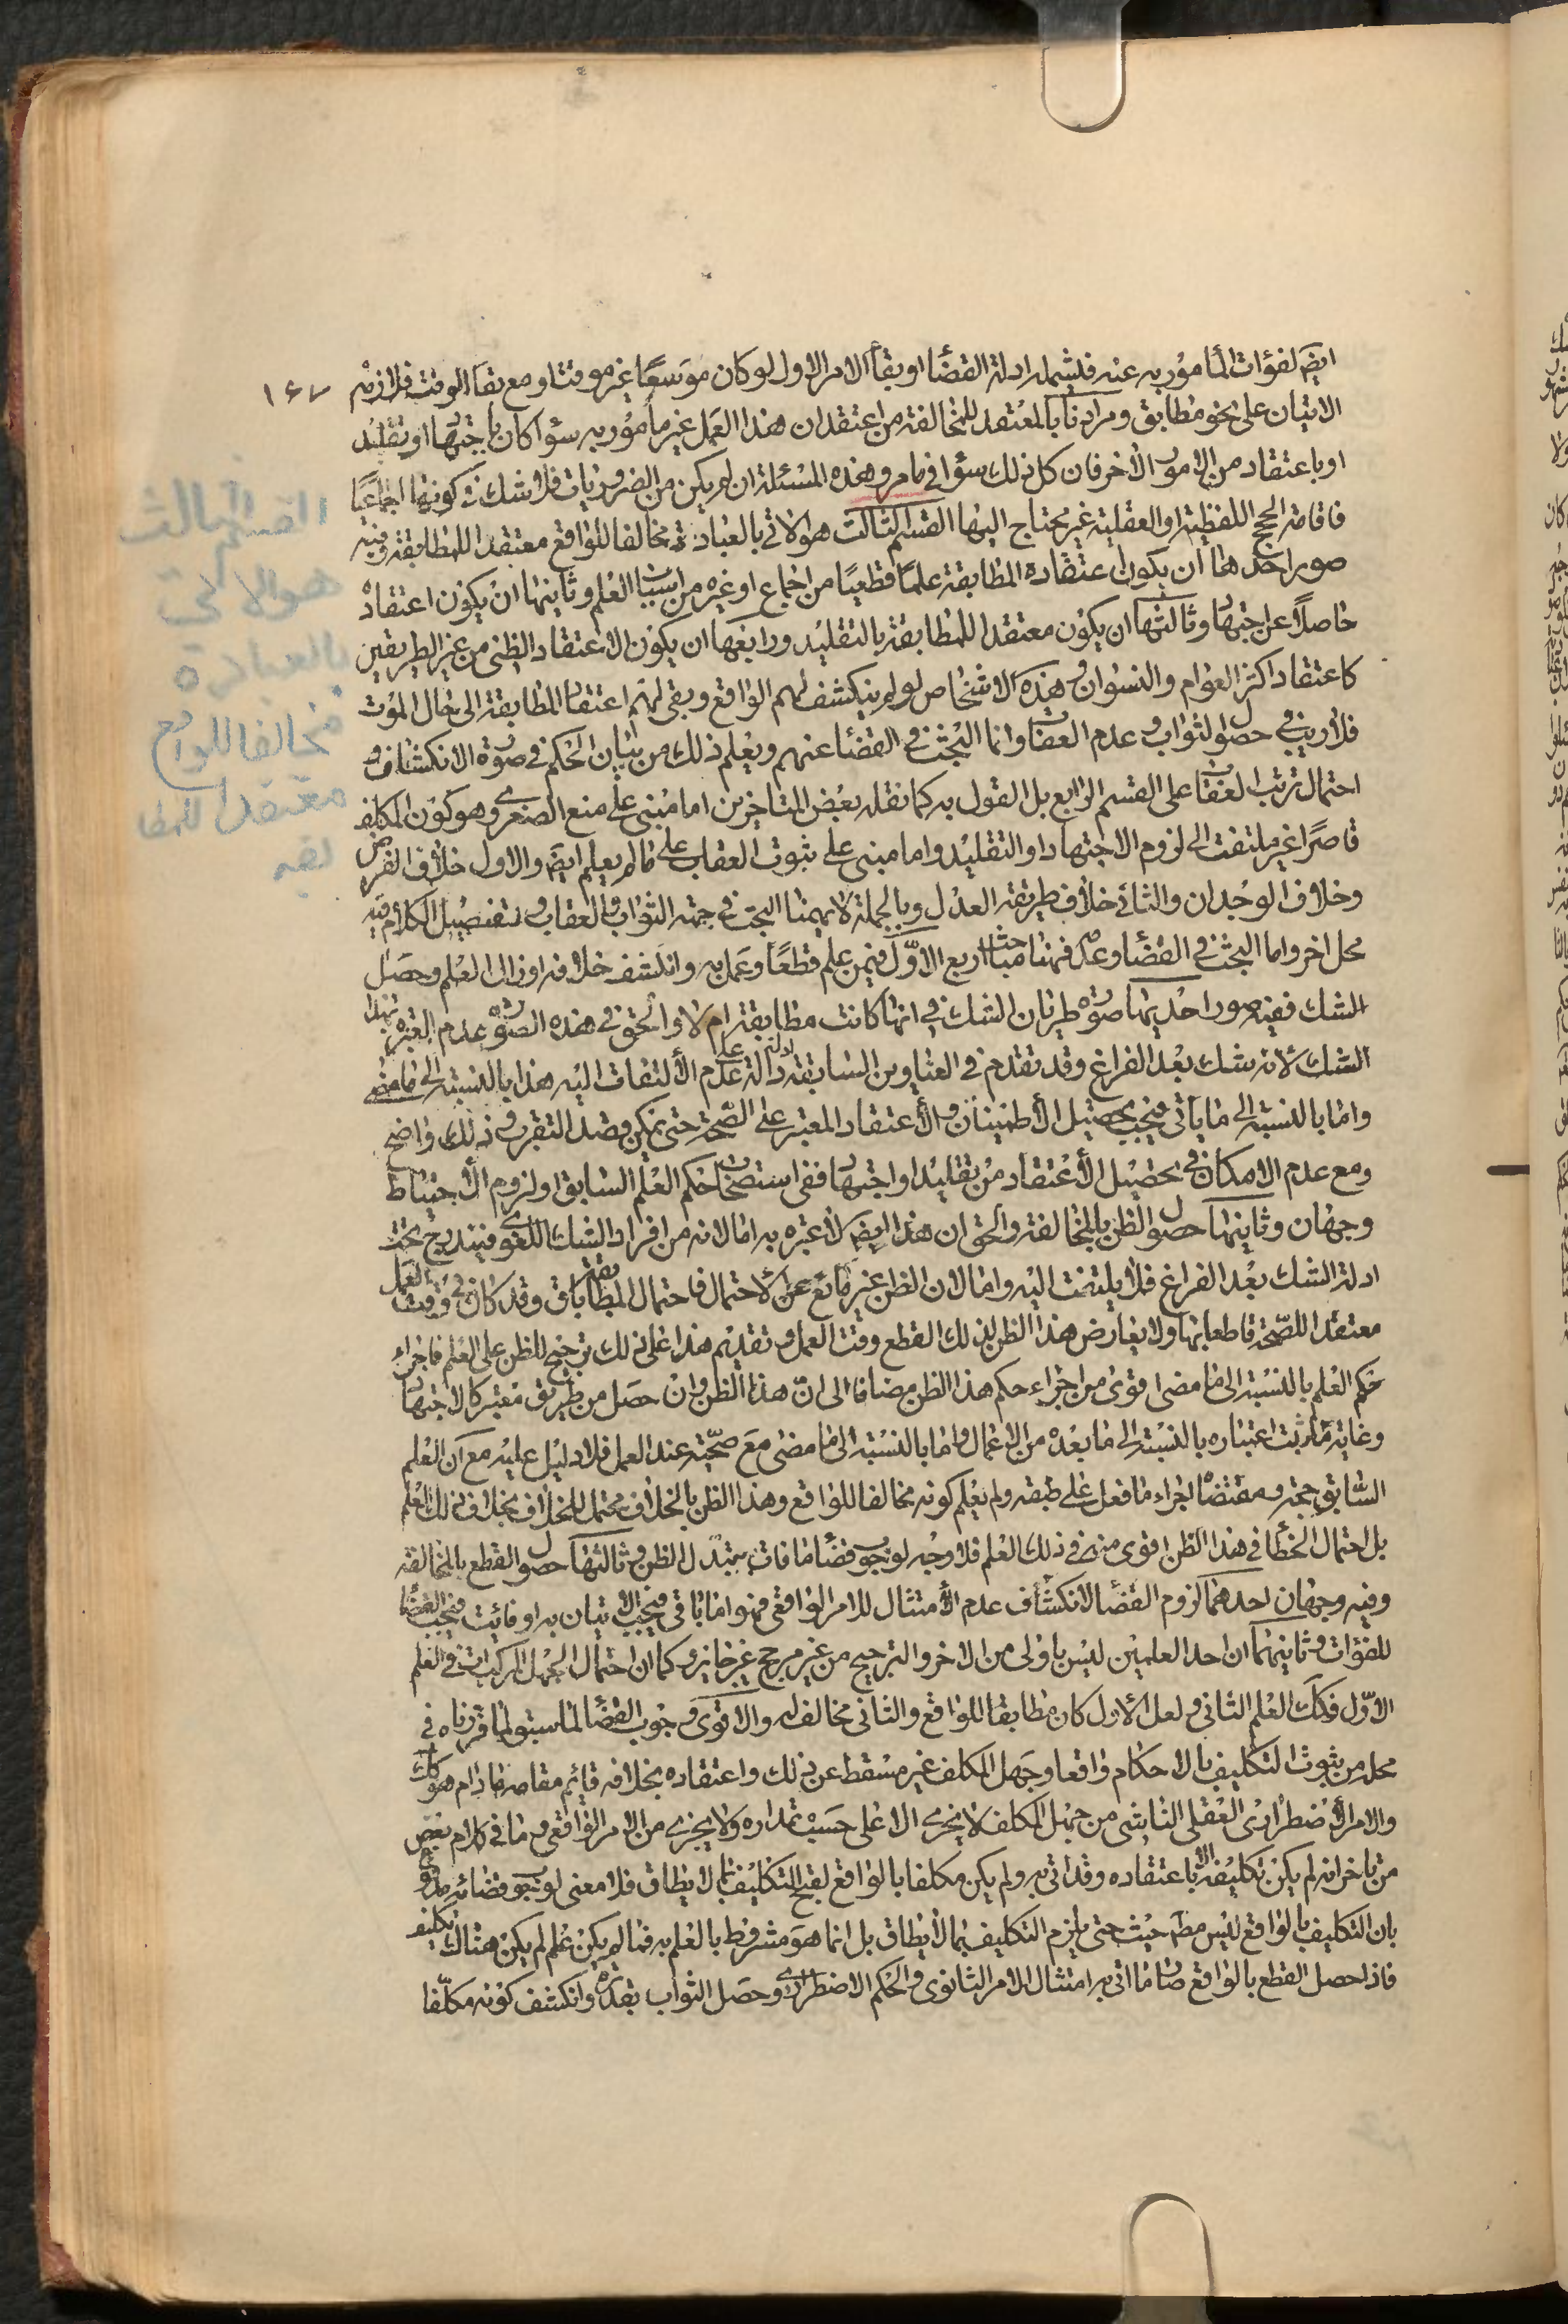 ١٤٧
ايضا لفوات المأمور به عنه فيشمله ادلة القضاء او بقاء الامر الاول لو كان موسعا غير موقت او مع بقاء الوقت فلازمه
الاتيان على نحو مطابق ومرادنا بالمعتقد للمخالفة من اعتقد ان هذا العمل غير مأمور به سواء كان باجتهاد او تقليد
او باعتقاد من الامور الاخر فان كل ذلك سواء في ما مر وهذه المسئلة ان لم يكن من الضروريات فلا شك في كونها اجماعيا
فاقامة الحجج اللفظية والعقلية غير محتاج اليها القسم الثالث هو الاتي بالعبادة مخالفا للواقع معتقدا للمطابقة وفيه
صور احدها ان يكون اعتقاده المطابقة علما قطعيا من اجماع او غيره من اسباب العلم وثانيها ان يكون اعتقاده
حاصلا عن اجتهاد وثالثها ان يكون معتقدا للمطابقة بالتقليد ورابعها ان يكون الاعتقاد الظني من غير الطريقين
كاعتقاد اكثر العوام والنسوان وهذه الاشخاص لو لم ينكشف لهم الواقع وبقى لهم اعتقاد المطابقة الى حال الموت
فلا ريب في حصول الثواب وعدم العقاب وانما البحث في القضاء عنهم ويعلم ذلك من بيان الحكم في صورة الانكشاف و
احتمال ترتب العقاب على القسم الرابع بل القول به كما نقله بعض المتاخرين اما مبنى على منع الصغرى وهو كون المكلف
قاصرا غير ملتفت الى لزوم الاجتهاد او التقليد واما مبنى على ثبوت العقاب على ما لم يعلم ايضا والاول خلاف الفرض
وخلاف الوجدان والثاني خلاف طريقة العدل وبالجملة لا يهمنا البحث في جهة الثواب والعقاب ولتفصيل الكلام فيه
محل اخر واما البحث في القضاء وعدمه فهنا مباحث اربع الاول فيمن علم قطعا وعمل به وانكشف خلافه او زال العلم وحصل
الشك ففيه صور احديها صورة طريان الشك في انها كانت مطابقة ام لا والحق في هذه الصورة عدم العبرة بهذا
الشك لانه شك بعد الفراغ وقد تقدم في العناوين السابقة ادلة دالة على عدم الالتفات اليه هذا بالنسبة الى ما مضى
واما بالنسبة الى ما يأتى فيجب تحصيل الاطمينان والاعتقاد المعتبر على الصحة حتى يمكن قصد التقرب وذلك واضح
ومع عدم الامكان في تحصيل الاعتقاد من تقليد او اجتهاد ففى استصحاب حكم العلم السابق او لزوم الاحتياط
وجهان وثانيها حصول الظن بالمخالفة والحق ان هذا ايضا لا عبره به اما لانه من افراد الشك اللغوى فيندرج تحت
ادلة الشك بعد الفراغ فلا يلتفت اليه واما لان الظن غير مانع عن الاحتمال فاحتمال المطابقة باق وقد كان في وقت العمل
معتقدا للصحة قاطعا بها ولا يعارض هذا الظن لذلك القطع وقت العمل وتقديم هذا على ذلك ترجيح للظن على العلم فاجراء
حكم العلم بالنسبة الى ما مضى اقوى من اجراء حكم هذا الظن مضافا الى ان هذا الظن وان حصل من طريق معتبر كالاجتهاد
وغايته ما ثبت اعتباره بالنسبة الى ما بعده من الاعمال واما بالنسبة الى ما مضى مع صحته عند العمل فلا دليل عليه مع ان العلم
السابق حجة ومقتضاه اجزاء ما فعل على طبقه ولم يعلم كونه مخالفا للواقع وهذا الظن بالخلاف محتمل للخلاف بخلاف ذلك العلم
بل احتمال الخطأ في هذا الظن اقوى منه في ذلك العلم فلا وجه لوجوب قضاء ما فات بتبدل الظن وثالثها حصول القطع بالمخالفة
وفيه وجهان احدهما لزوم القضاء لانكشاف عدم الامتثال للامر الواقعى فهو اما باقى فيجب الاتيان به او فائت فيجب القضاء
للفوات وثانيهما ان احد العلمين ليس باولى من الاخر والترجيح من غير مرجح غير جايز وكما ان احتمال الجهل المركب ات في العلم
الاول فكك العلم الثانى ولعل الاول كان مطابقا للواقع والثانى مخالف له والاقوى وجوب القضاء لما سبق ولما قررناه في
محله من ثبوت التكليف بالاحكام واقعا وجهل المكلف غير مسقط عن ذلك واعتقاده بخلافه قائم مقامه ما دام هو كك
والامر الاضطرارى العقلى الناشى من جهل المكلف لا يجرى الا على حسب مقداره ولا يجزى من الامر الواقعى وما في كلام بعض
من تاخر انه لم يكن تكليفه الا باعتقاده وقد اتى به ولم يكن مكلفا بالواقع لقبح التكليف بما لا يطاق فلا معنى لوجوب قضائه مدفوع
بان التكليف بالواقع ليس مطلقا حيث حتى يلزم التكليف بما لا يطاق بل انما هو مشروط بالعلم به فما لم يكن علم لم يكن هناك تكليف
فاذا حصل القطع بالواقع صار ما اتى به امتثال الامر الثانوى والحكم الاضطرارى وحصل الثواب بقدره وانكشف كونه مكلفا
القسم الثالث
هو الاتى
بالعبادة
مخالفا للواقع
معتقدا للمطا
بقه